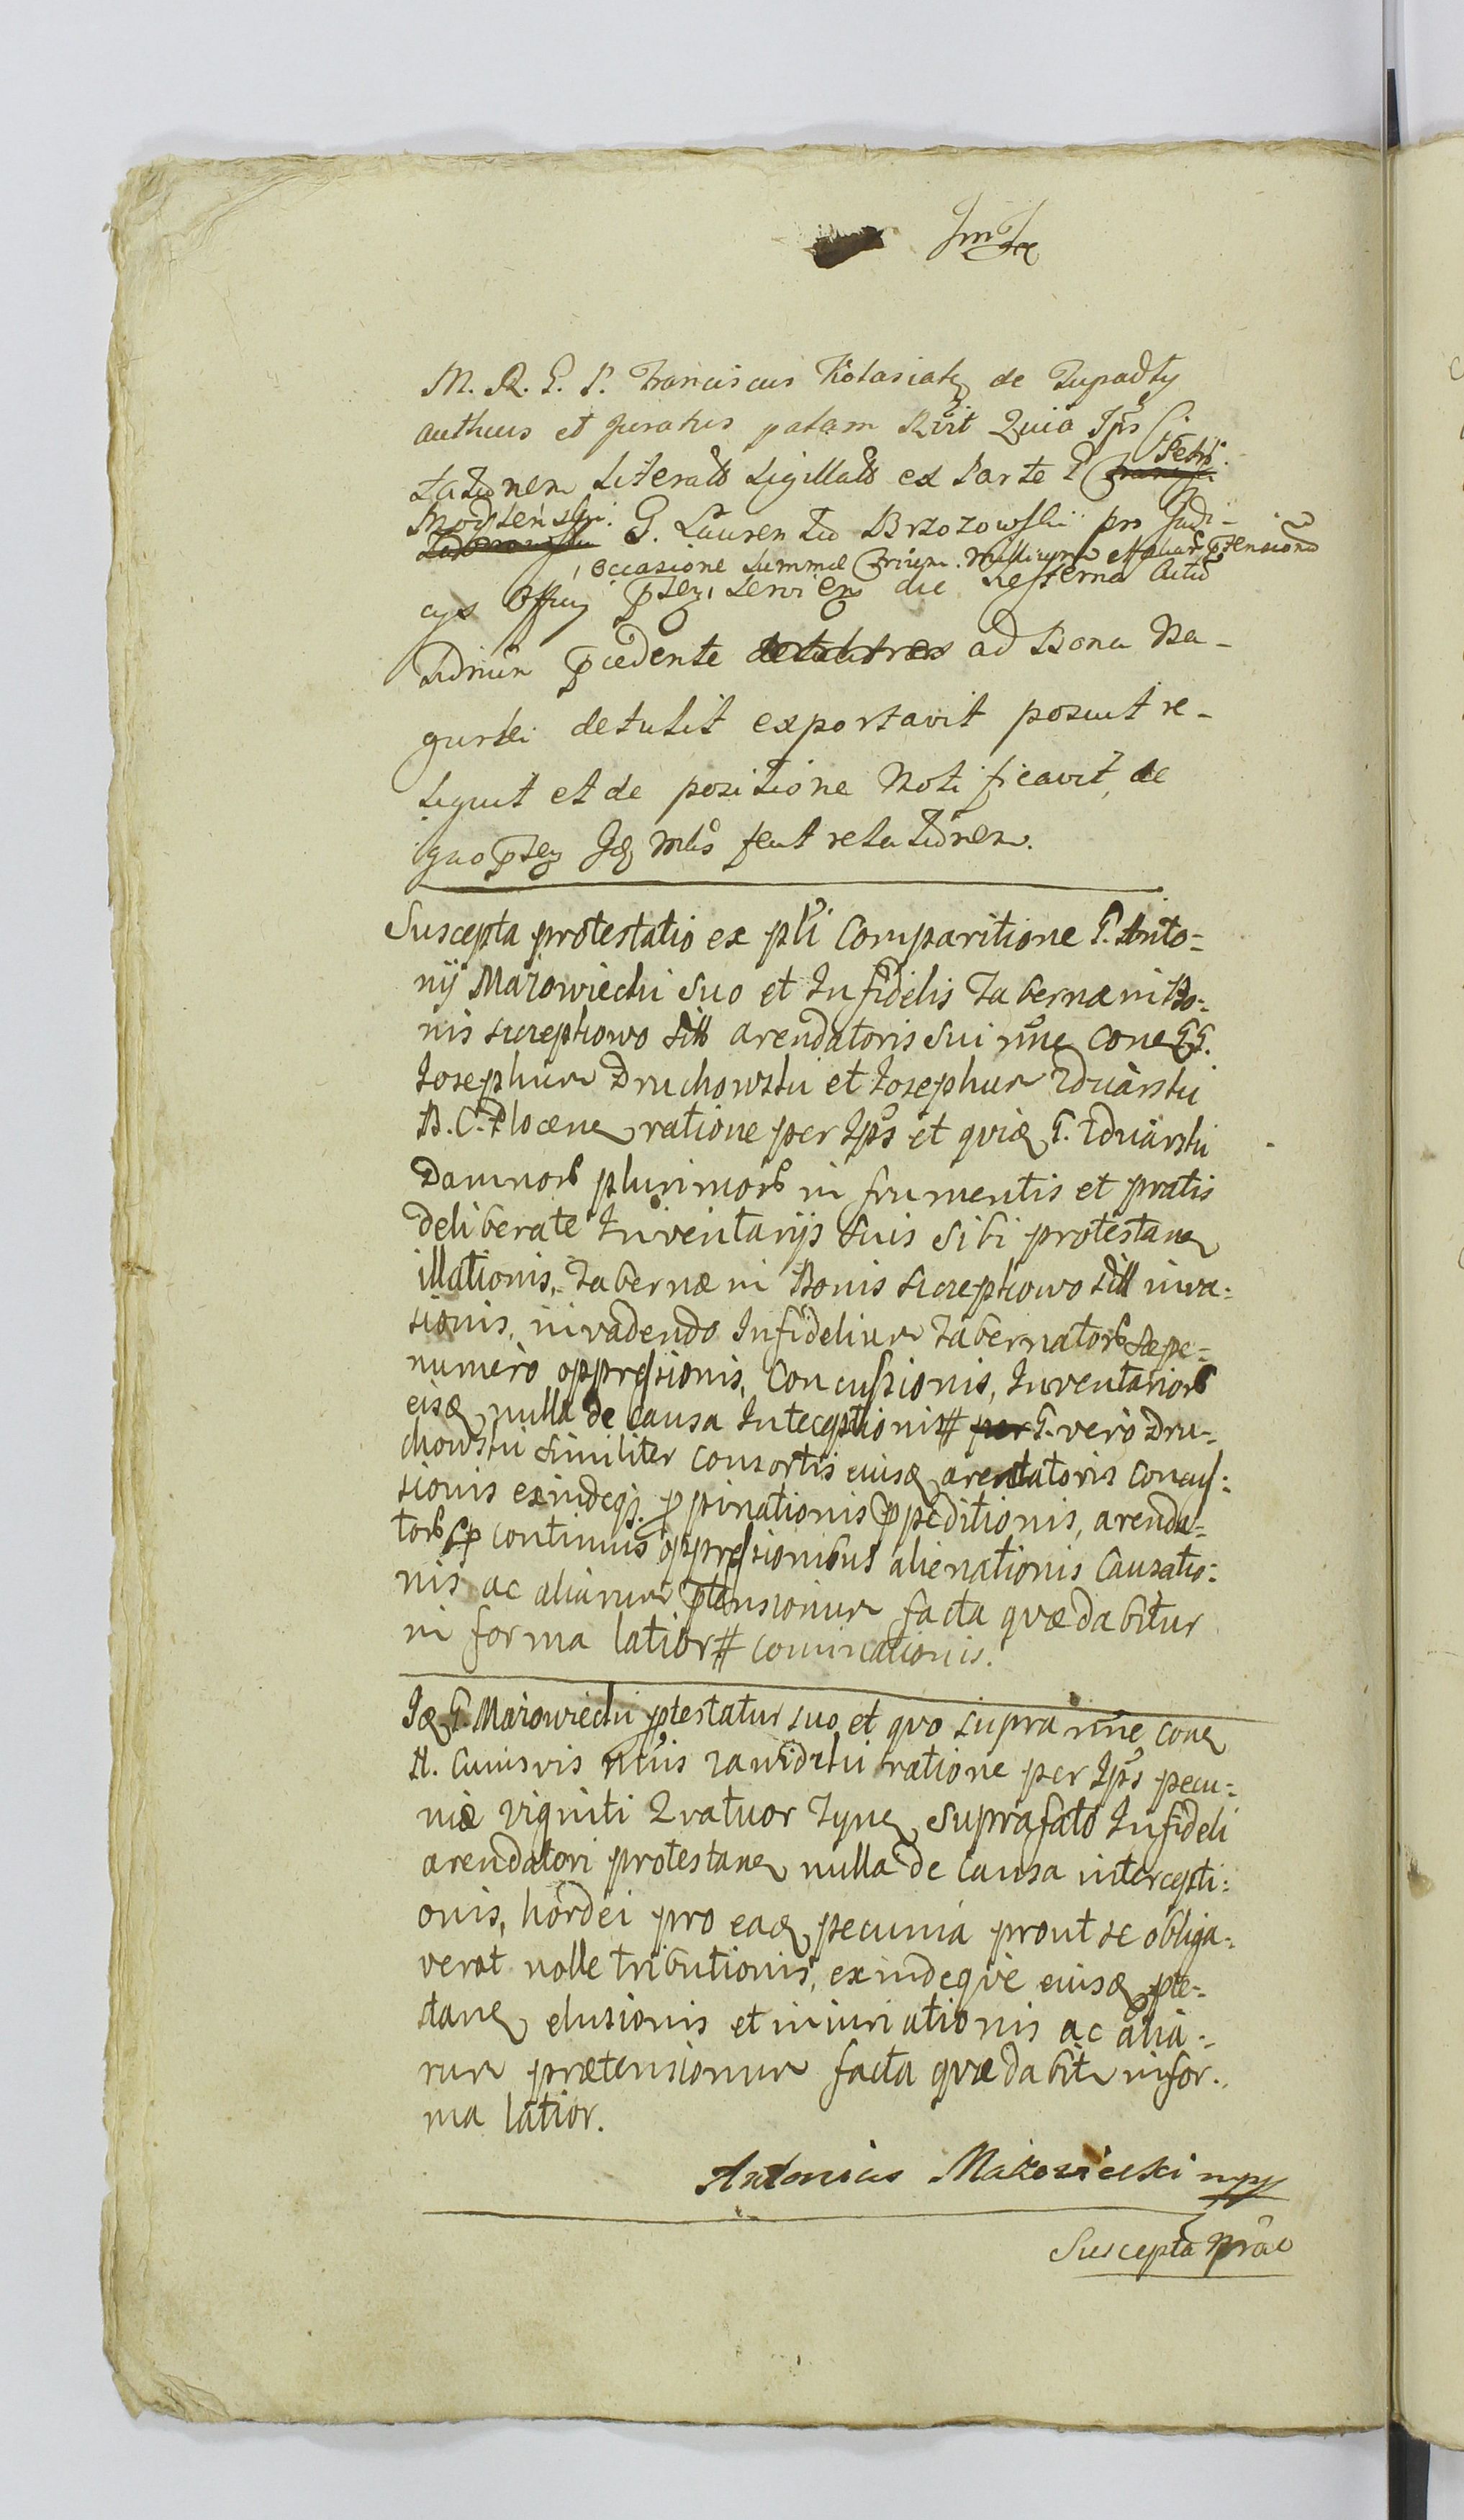 M. R. G. P. Franciscus Kołasiatz de Łupadły
authcus et juratus palam Rvit Quia Ips Ci
tationem Literalb Sigillatb ex Parte G Petri
Modlenski G. Laurentio Brzozowski pro Judi-
occasione Summæ et aliar ptensionu
cys Offy pten, servien die hesterna actu
pcedente ad Bona Na-
gurki detulit exportavit posuit re-
liquit et de positione Notificavit, de
quo ptes Id mlis fecit relationem.
Suscepta protestatio ex pli Comparitione G. Anto-
nij Mazowiecki suo et Infidelis Tabernæ in Bo-
nis Sierephowo sitt arendatoris sui nne cone GG.
Iosephum Druchowski et Iosephum Zduński
B. C. Plocene ratione per Ips et quid G.
Damnorb plurimorb in frumentis et pratis
deliberate Inventarijs suis sibi protestan
illationis, Tabernæ in Bonis Sierephowo sitt inva-
sionis, invadendo Infidelium Tabernatorb sæpe-
numero oppressionis, Concussionis, Inventariorb
eisd nulla de causa Interceptionis # per G. vero Dru-
chowski similiter consortis eiusd arendatoris concus-
sionis exindeq propinationis ppeditionis, arenda-
torb continuis oppressionibus alienationis Causatio-
nis ac aliarum ptensionum facta quæ dabitur
in forma latior # cominationis.
Id G. Mazowiecki ptestatur suo et quo supra nne cone
N. Cuiusvis nnis Zawidzki ratione per Ips pecu-
niæ viginti Quatuor Tyn suprafato Infideli
arendatori protestan nulla de causa intercepti-
onis, hordei pro ead pecunia prout se obliga-
verat nolle tributionis, exindeque eiusd pte-
stan elusionis et iniuriationis ac alia-
rum prætensionum facta quæ dabit in for-
ma latior.
Antonius Mazowiecki mpp
Suscepta